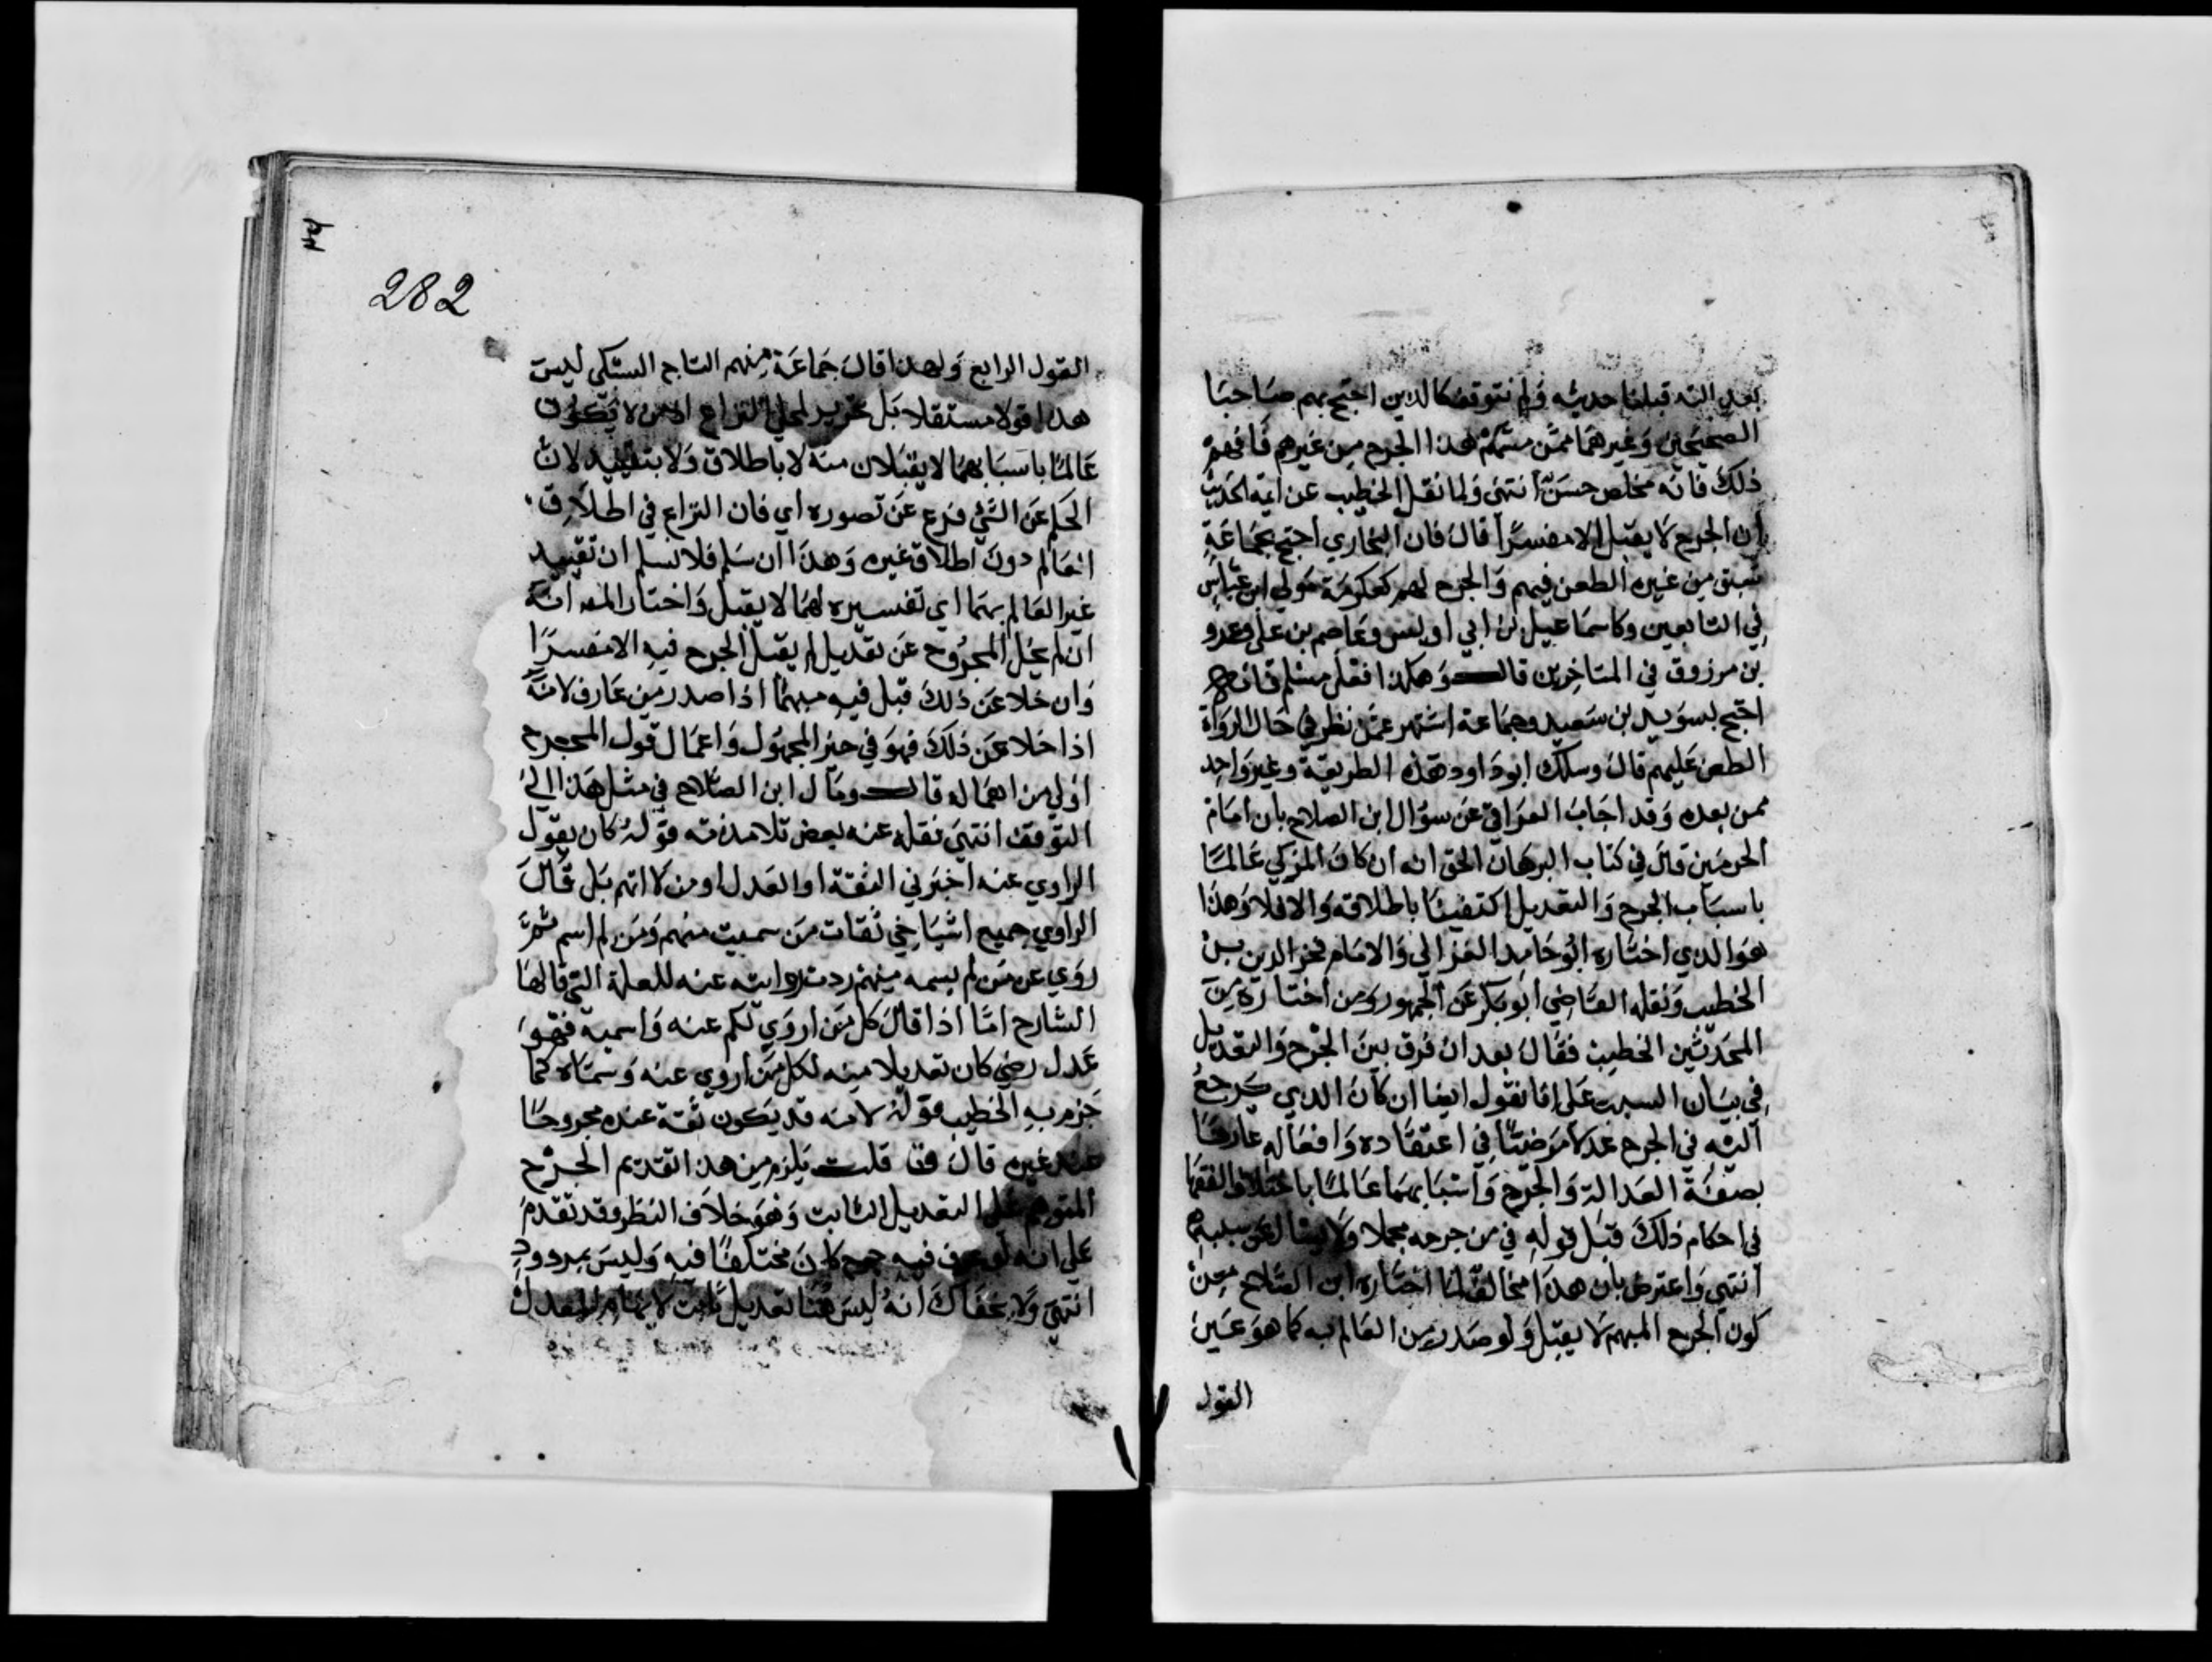 بعدالته قبلنا حديثه ولم نتوقف كالذين احتج بهم صاحبا
الصحيحين وغيرهما ممن مسهم هذا الجرح من غيرهم فافهم
ذلك فانه مخلص حسن انتهى ولما نقل الخطيب عن ايمة الحديث
أن الجرح لا يقبل الا مفسرا قال فان البخاري احتج بجماعة
سبق من غيره الطعن فيهم والجرح لهم كعكرمة مولى ابن عباس
في التابعين وكاسماعيل بن ابي اويس وعاصم بن علي وعمرو
بن مرزوق في المتاخرين قال وهكذا فعل مسلم فانه
احتج بسويد بن سعيد وجماعة اشتهر عمن نظر في حال الرواة
الطعن عليهم قال وسلك ابو داود هذه الطريقة وغير واحد
ممن بعده وقد اجاب العراقي عن سؤال ابن الصلاح بان امام
الحرمين قال في كتاب البرهان الحق انه ان كان المزكي عالما
باسباب الجرح والتعديل اكتفينا باطلاقه والا فلا وهذا
هو الذي اختاره ابو حامد الغزالي والامام فخر الدين بن
الخطيب ونقله القاضي ابو بكر عن الجمهور ومن اختاره من
المحدثين الخطيب فقال بعد ان فرق بين الجرح والتعديل
في بيان السبب على انا نقول ايضا ان كان الذي يرجع
اليه في الجرح عدلا مرضيا في اعتقاده وافعاله عارفا
بصفة العدالة والجرح واسبابهما عالما باختلاف الفقها
في احكام ذلك قبل قوله في من جرحه مجملا ولا يسال عن سببه
انتهى واعترض بان هذا مخالف لما اختاره ابن الصلاح من
كون الجرح المبهم لا يقبل ولو صدر من العالم به كما هو عين
القول
282
القول الرابع ولهذا قال جماعة منهم التاج السبكي ليس
هذا قولا مستقلا بل تحرير لمحل النزاع اذ من لا يكون
عالما باسبابهما لا يقبلان منه لا باطلاق ولا بتقييد لان
الحكم عن الشيء فرع عن تصوره اي فان النزاع في اطلاق
العالم دون اطلاق غيره وهذا ان سلم فلا نسلم ان تقييد
غير العالم بهما اي تفسيره لهما لا يقبل واختار المصـ انه
ان لم يخل المجروح عن تعديل لم يقبل الجرح فيه الا مفسرا
وان خلا عن ذلك قبل فيه مبهما اذا صدر من عارف لانه
اذا خلا عن ذلك فهو في حيز المجهول واعمال قول المجرح
اولى من اهماله قال ومال ابن الصلاح في مثل هذا الى
التوقف انتهى نقله عنه بعض تلامذته قوله كان يقول
الراوي عنه اخبرني الثقة او العدل او من لا اتهم بل قال
الراوي جميع اشياخي ثقات من سميت منهم ومن لم اسم ثم
روي عن من لم يسمه منهم ردت روايته عنه للعلة التي قالها
الشارح اما اذا قال كل من اروي لكم عنه واسميه فهو
عدل رضي كان تعديلا منه لكل من اروي عنه وسماه كما
جزم به الخطيب قوله لانه قد يكون ثقة عنده مجروحا
عند غيره قال ق قلت يلزم من هذا تقديم الجرح
المتوهم على التعديل الثابت وهو خلاف النظر وقد تقدم
على انه لو عرف فيه جرح كان مختلفا فيه وليس بمردود
انتهى ولا يخفاك انه ليس هنا تعديل ثابت لابهام المعدل